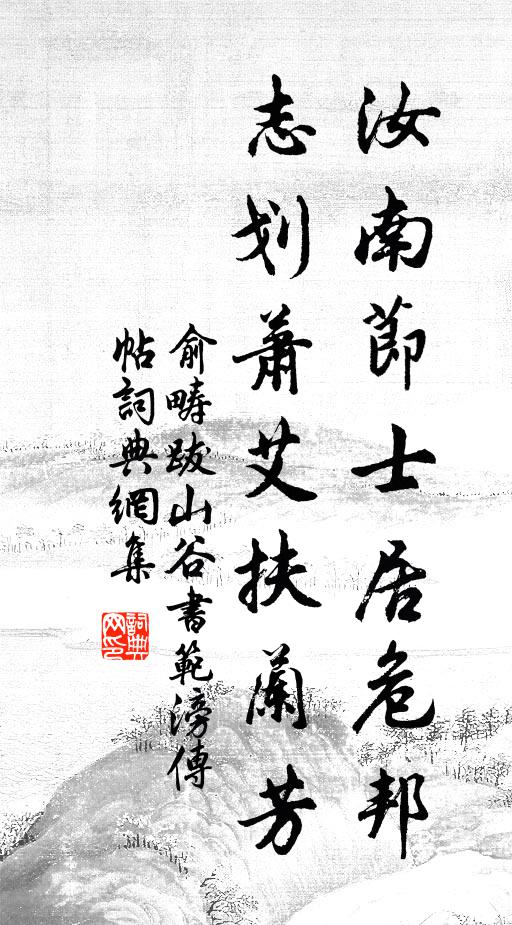 汝南節士居危邦
志划蕭艾扶蘭芳
俞畴跋山谷書範滂傳
帖詞典網集
詞典网印